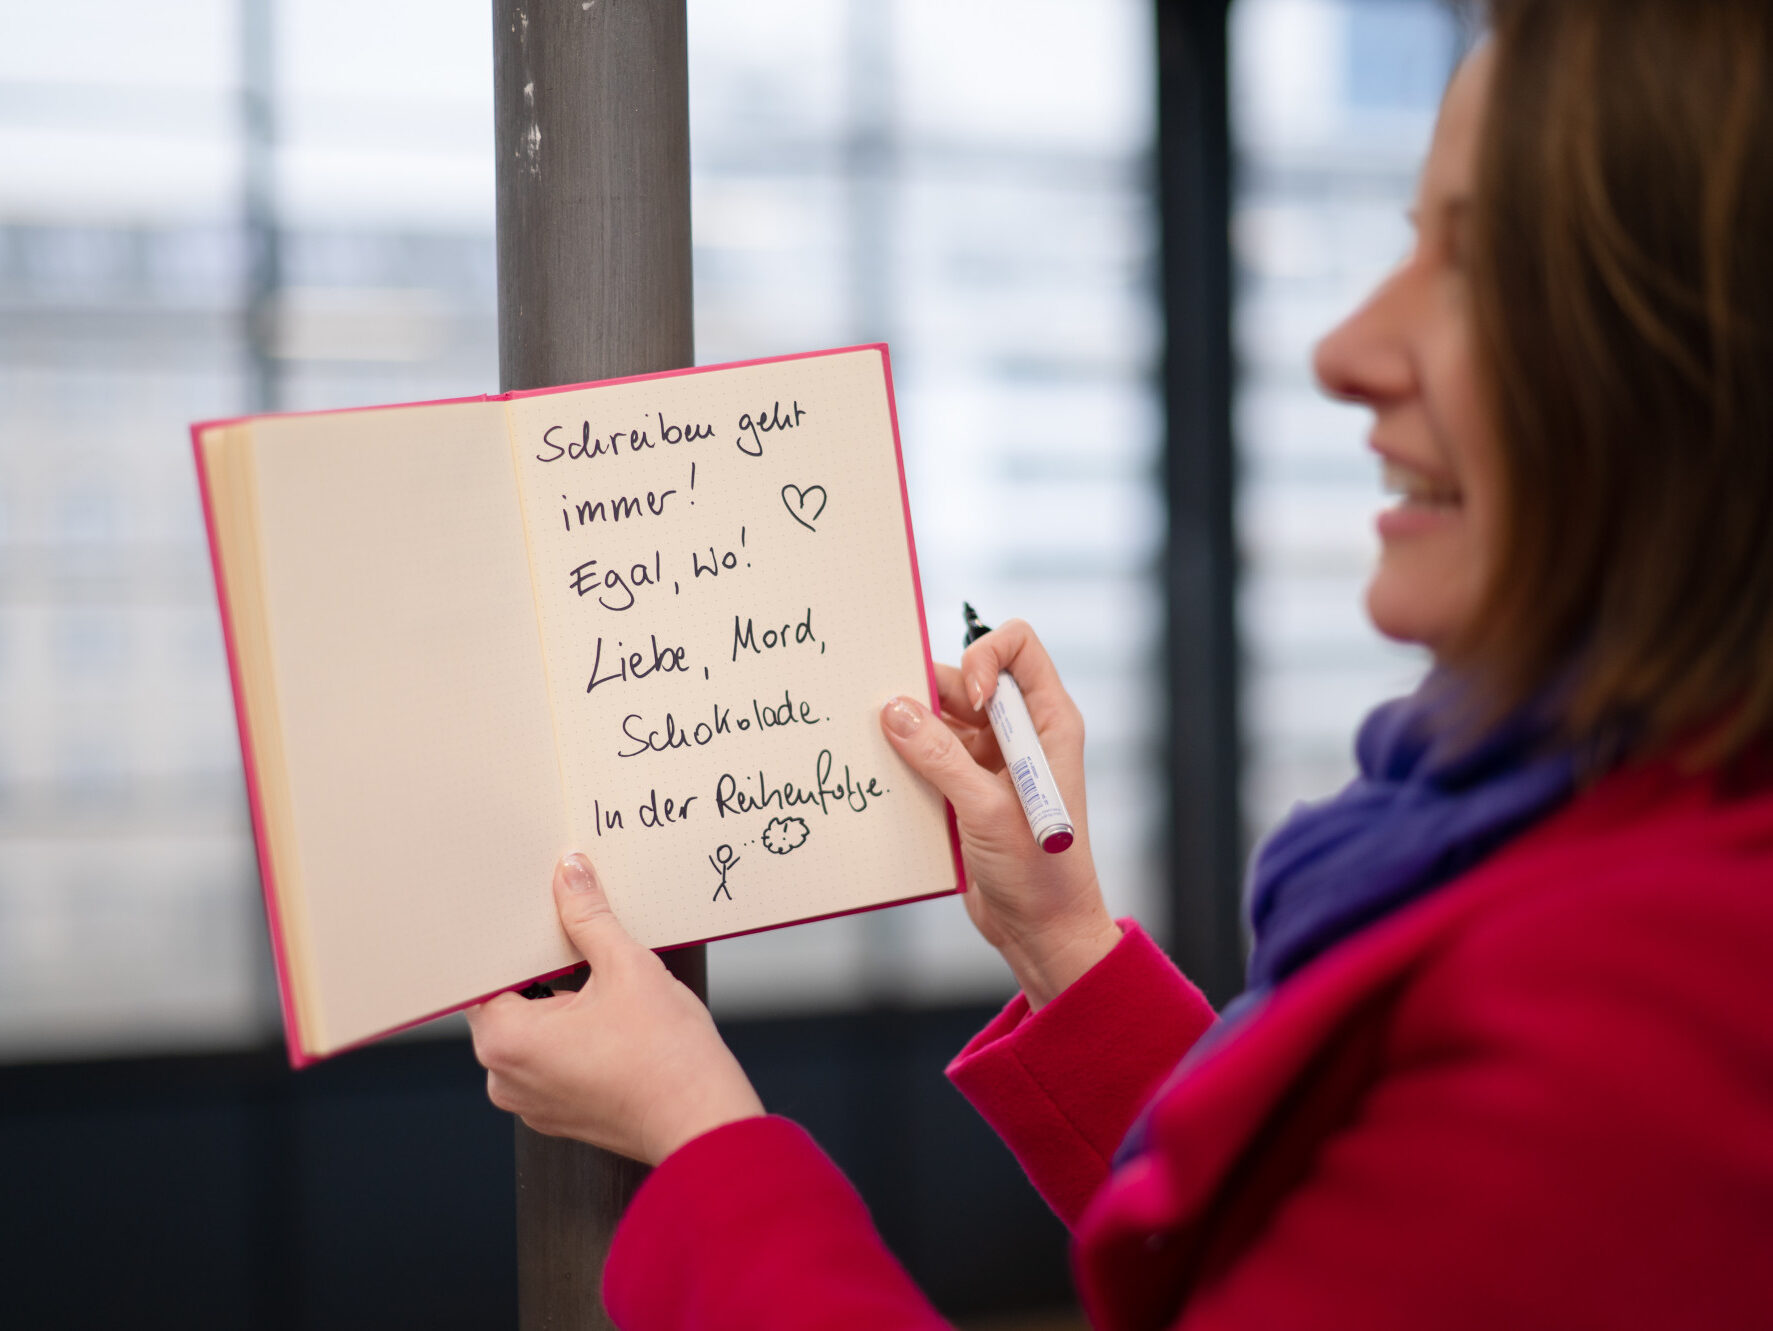 Schreiben geht
immer!
Egal, wo!
Liebe, Mord,
Schokolade.
In der Reihenfolge.